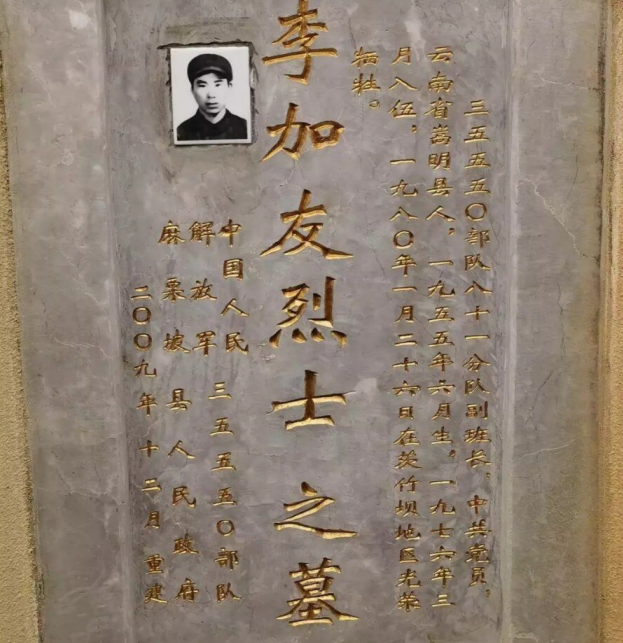 三五五五〇部队八十一分队副班长，中共党员，
云南省嵩明县人，一九五五年六月生，一九七六年三
月入伍，一九八〇年一月二十六日在茨竹坝地区光荣
牺牲。
李加友烈士之墓
中国人民
解放军 三五五五〇部队
麻栗坡县人民政府
二〇〇九年十二月重建